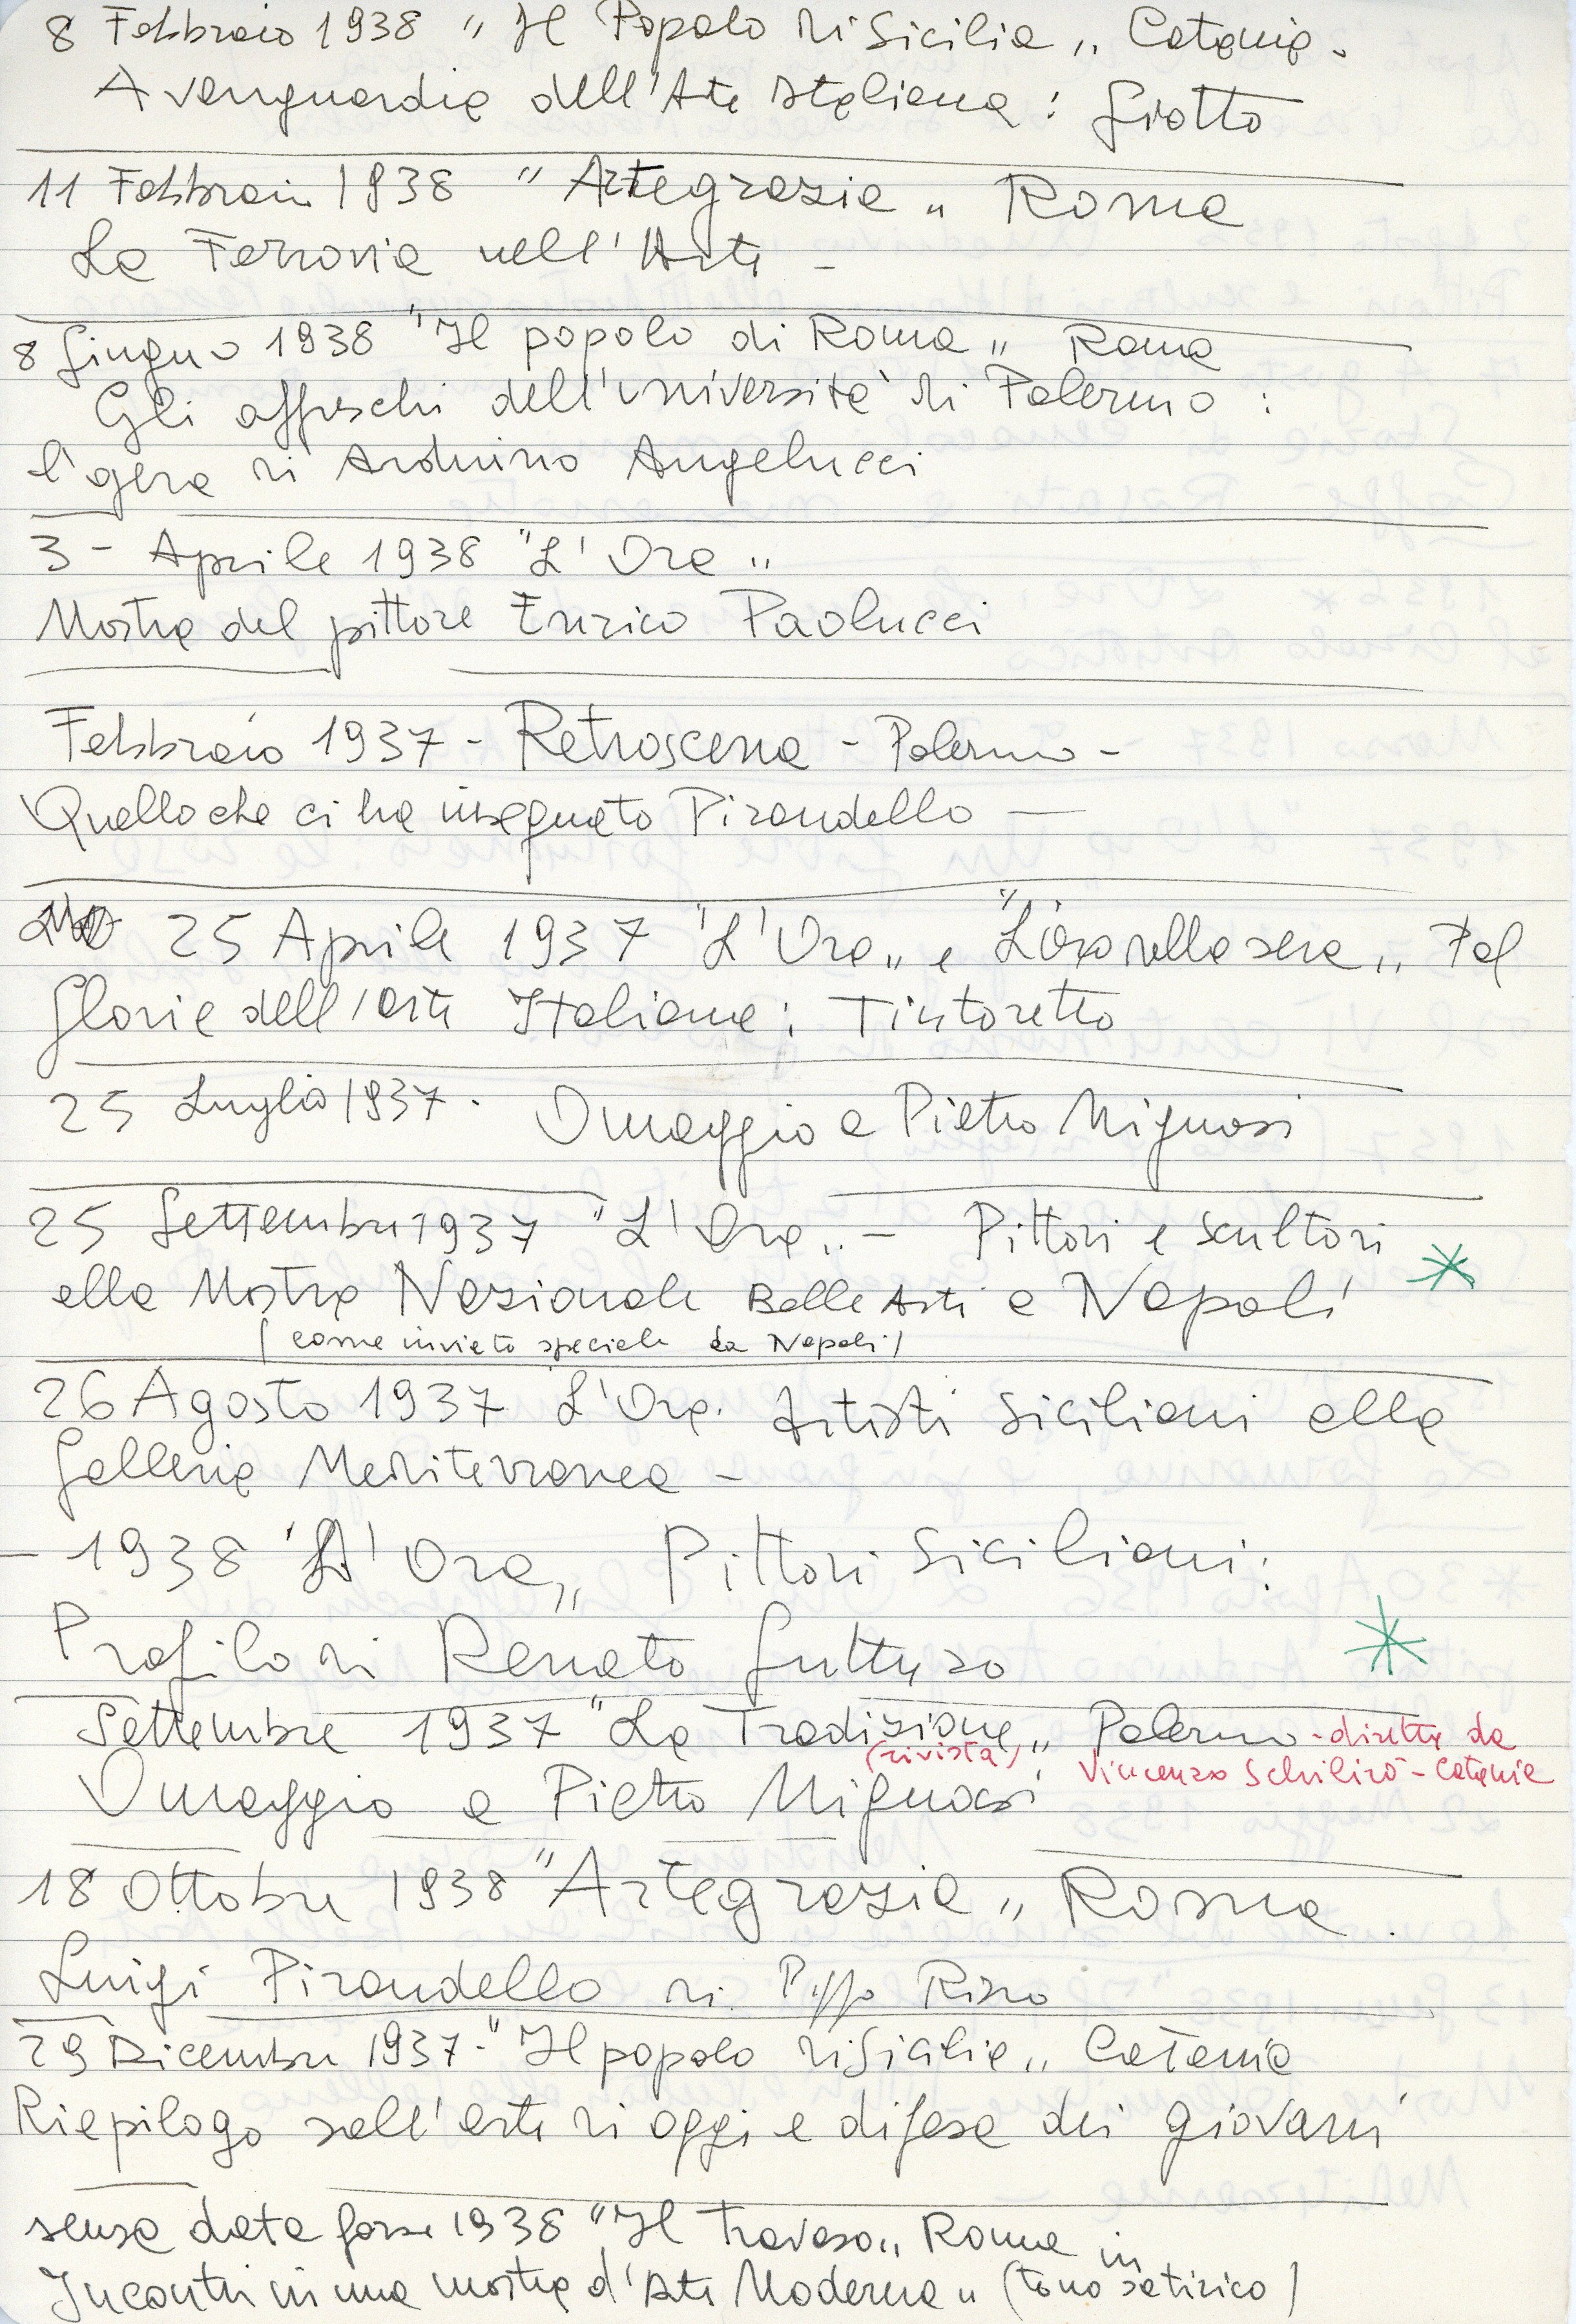 8 Febbraio 1938 "Il Popolo di Sicilia" Catania.
Avanguardia dell'Arte Italiana: Giotto
11 Febbraio 1938 "Artegrazia" Roma
La Ferrovia nell'Arte -
8 Giugno 1938 "Il popolo di Roma" Roma
Gli affreschi dell'università di Palermo:
l'opera di Arduino Angelucci
3 - Aprile 1938 "L'Ora"
Mostra del pittore Enrico Paolucci
Febbraio 1937 - Retroscena - Palermo -
Quello che ci ha insegnato Pirandello —
25 Aprile 1937 "L'Ora" e "L'ora della sera" Pal
Glorie dell'arte Italiana: Tintoretto
25 Luglio 1937. Omaggio a Pietro Mignosi
25 Settembre 1937 "L'Ora" - Pittori e scultori
alla Mostra Nazionale Belle Arti a Napoli
(come inviato speciale da Napoli)
26 Agosto 1937 L'Ora. Artisti Siciliani alla
Galleria Mediterranea -
- 1938 "L'Ora" Pittori Siciliani:
Profilo di Renato Guttuso
Settembre 1937 "La Tradizione" Palermo - diretta da
(rivista) Vincenzo Schilirò - Catania
Omaggio a Pietro Mignosi
18 Ottobre 1938 "Artegrazia" Roma.
Luigi Pirandello di Pippo Rizzo
29 Dicembre 1937 - "Il popolo di Sicilia" Catania
Riepilogo sull'arte di oggi e difesa dei giovani
senza data forse 1938 "Il Travaso" Roma
Incontri in una mostra d'Arte Moderna" (tono in satirico)